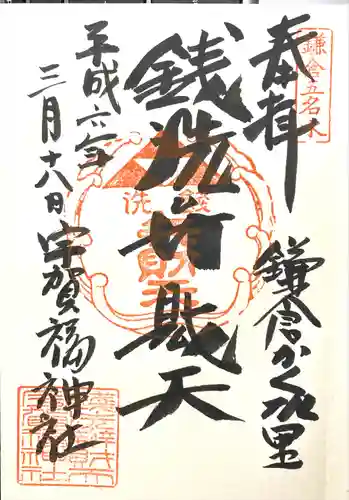 奉拝
鎌倉五名水
鎌倉かくれ里
銭洗弁財天
銭洗
平成六年
三月十八日
宇賀福神社